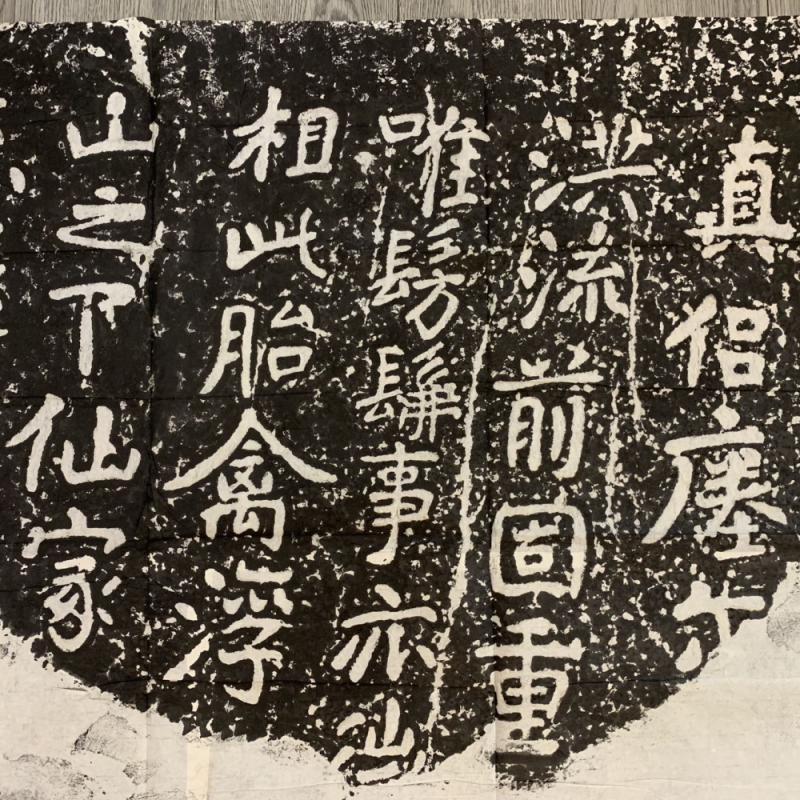 山之下仙家
相此胎禽浮
唯髣髴事亦
洪流前固重
真侶瘞